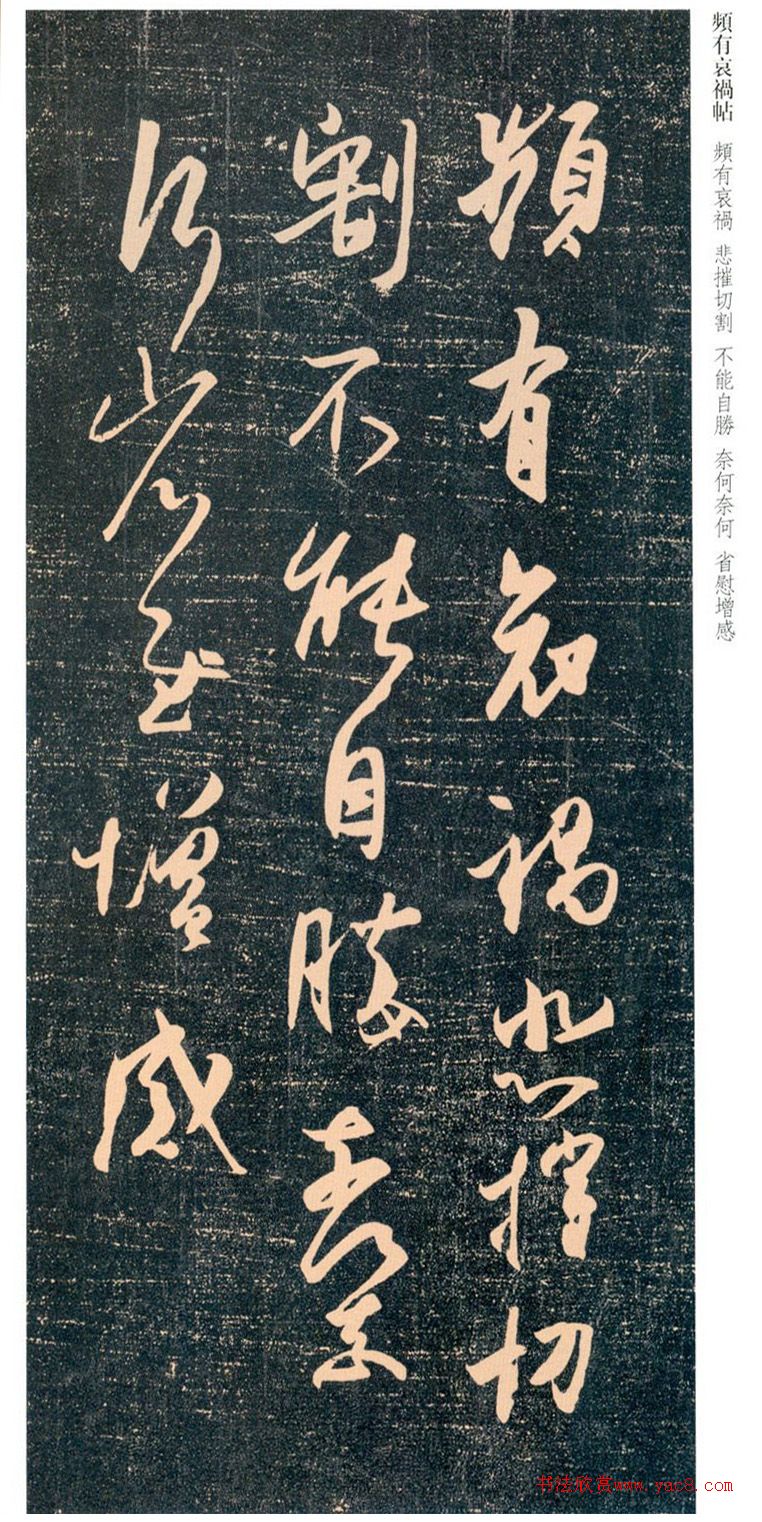 頻有哀禍帖 頻有哀禍 悲摧切割 不能自勝 奈何奈何 省慰增感
頻有哀禍悲摧切
割不能自勝奈何奈
何省慰增感
书法欣赏www.yac8.com